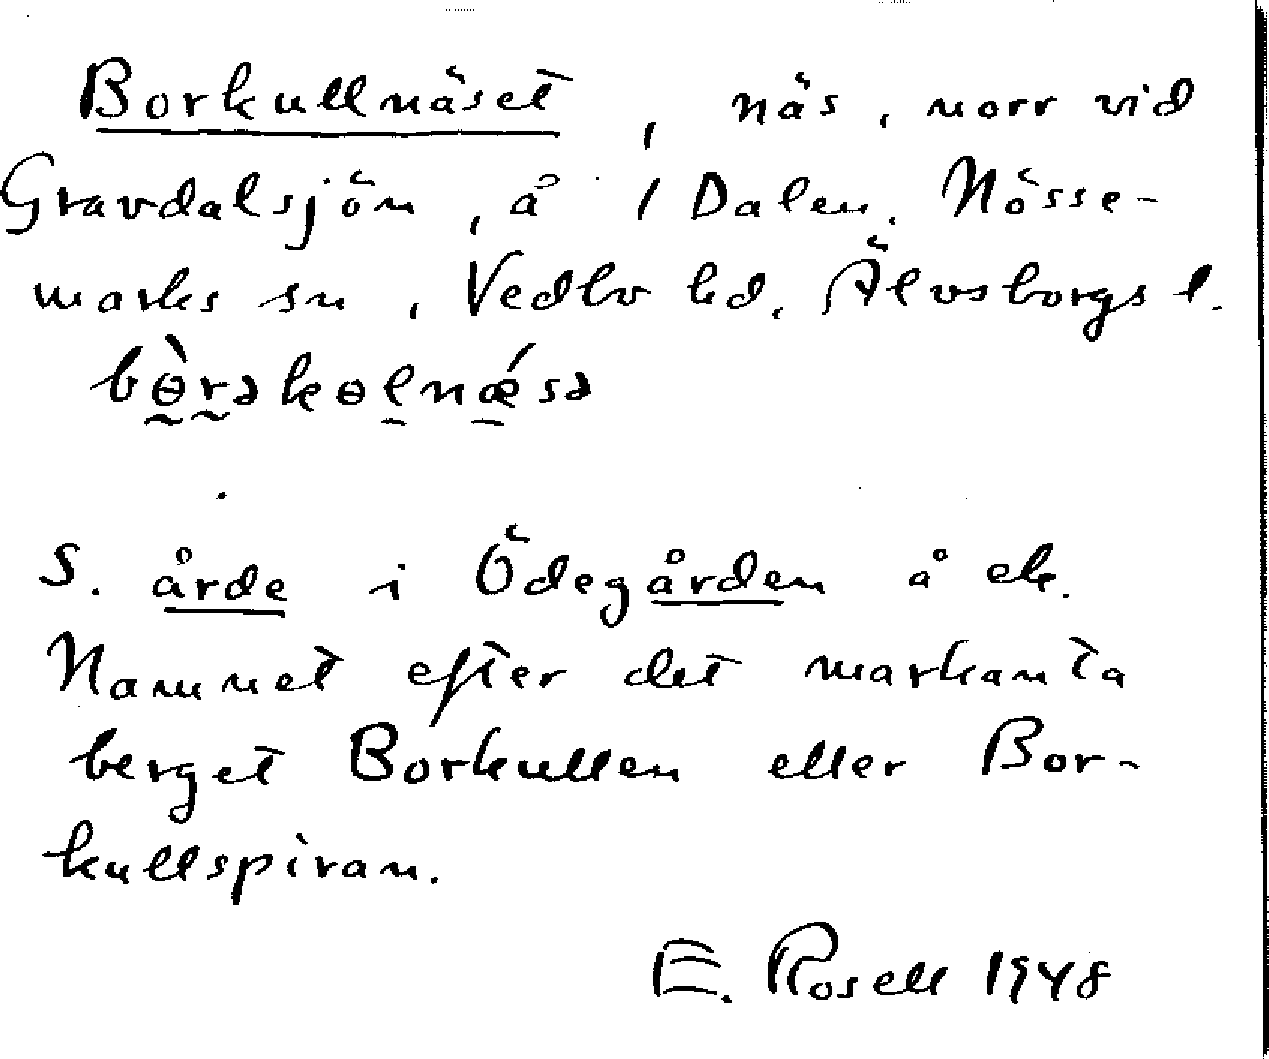 Borkullnäset, näs, norr vid
Gravdalsjön, å 1 Dalen. Nösse-
marks sn, Vedbo hd, Älvsborgs l.
S. årde i Ödegården å ek.
Namnet efter det markanta
berget Borkullen eller Bor-
kullspiran.
E. Rosell 1948